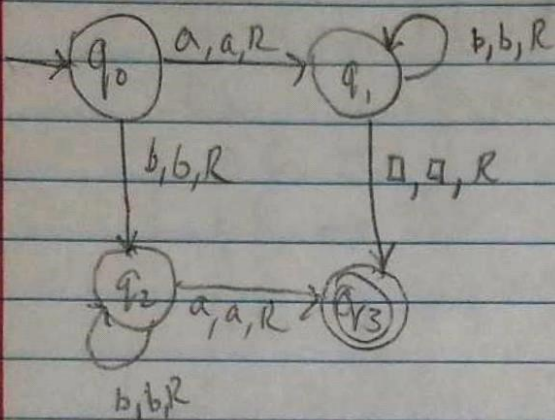 q0 a,a,R q1 b,b,R
b,b,R □,□,R
q2 a,a,R q3
b,b,R